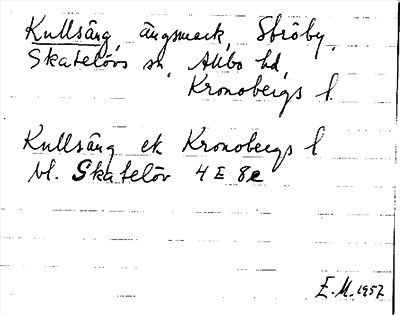 Kullsäng, ängsmark, Ströby,
Skatelövs sn, Allbo hd,
Kronobergs l.
Kullsäng ek Kronobergs l
bl. Skatelöv 4 E 8e
E.M. 1957